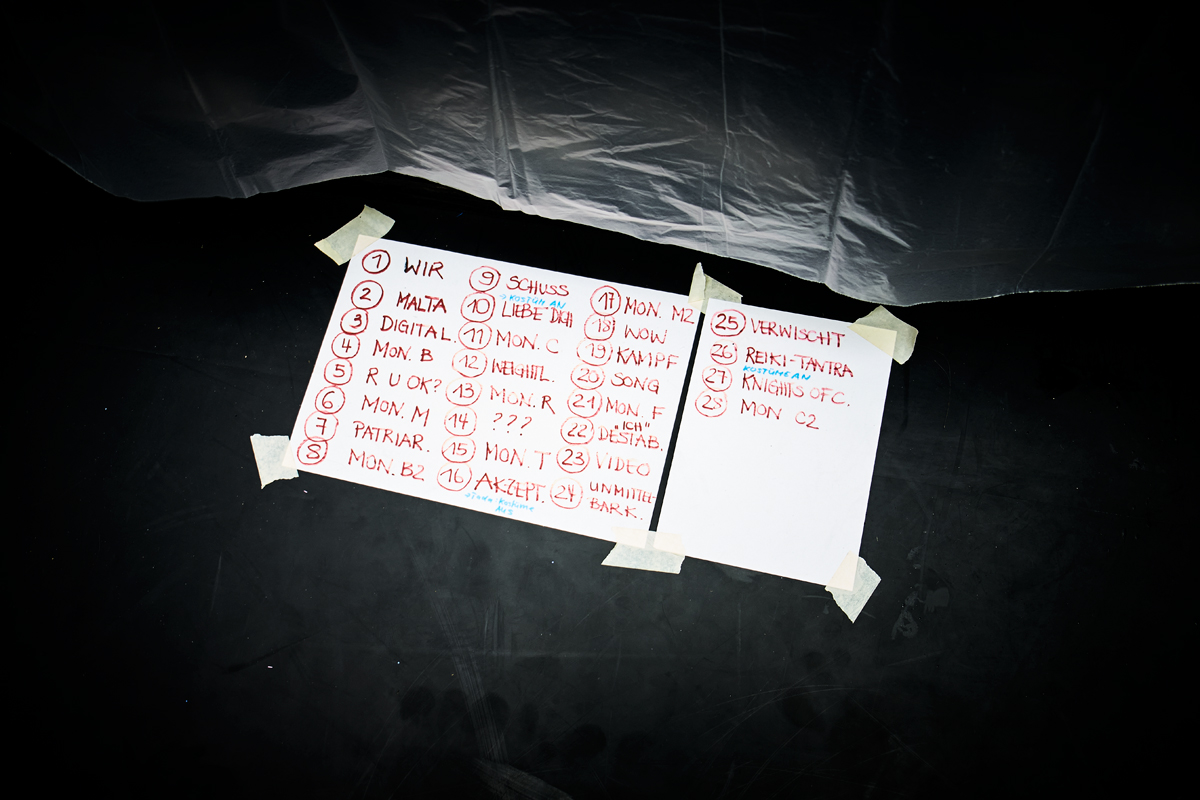 1 WIR
2 MALTA
3 DIGITAL.
4 MON. B
5 R U OK?
6 MON. M
7 PATRIAR.
8 MON. B2
9 SCHUSS
→ KOSTÜM AN
10 LIEBE DICH
11 MON. C
12
13 MON. R
14 ???
15 MON. T
16 AKZEPT.
17 MON. M2
18 WOW
19 KAMPF
20 SONG
21 MON. F
"ICH"
22 DESTAB.
23 VIDEO
24 UNMITTEL-
BARK.
25 VERWISCHT
26 REIKI-TANTRA
KOSTÜME AN
27 KNIGHTS OF C.
28 MON C2